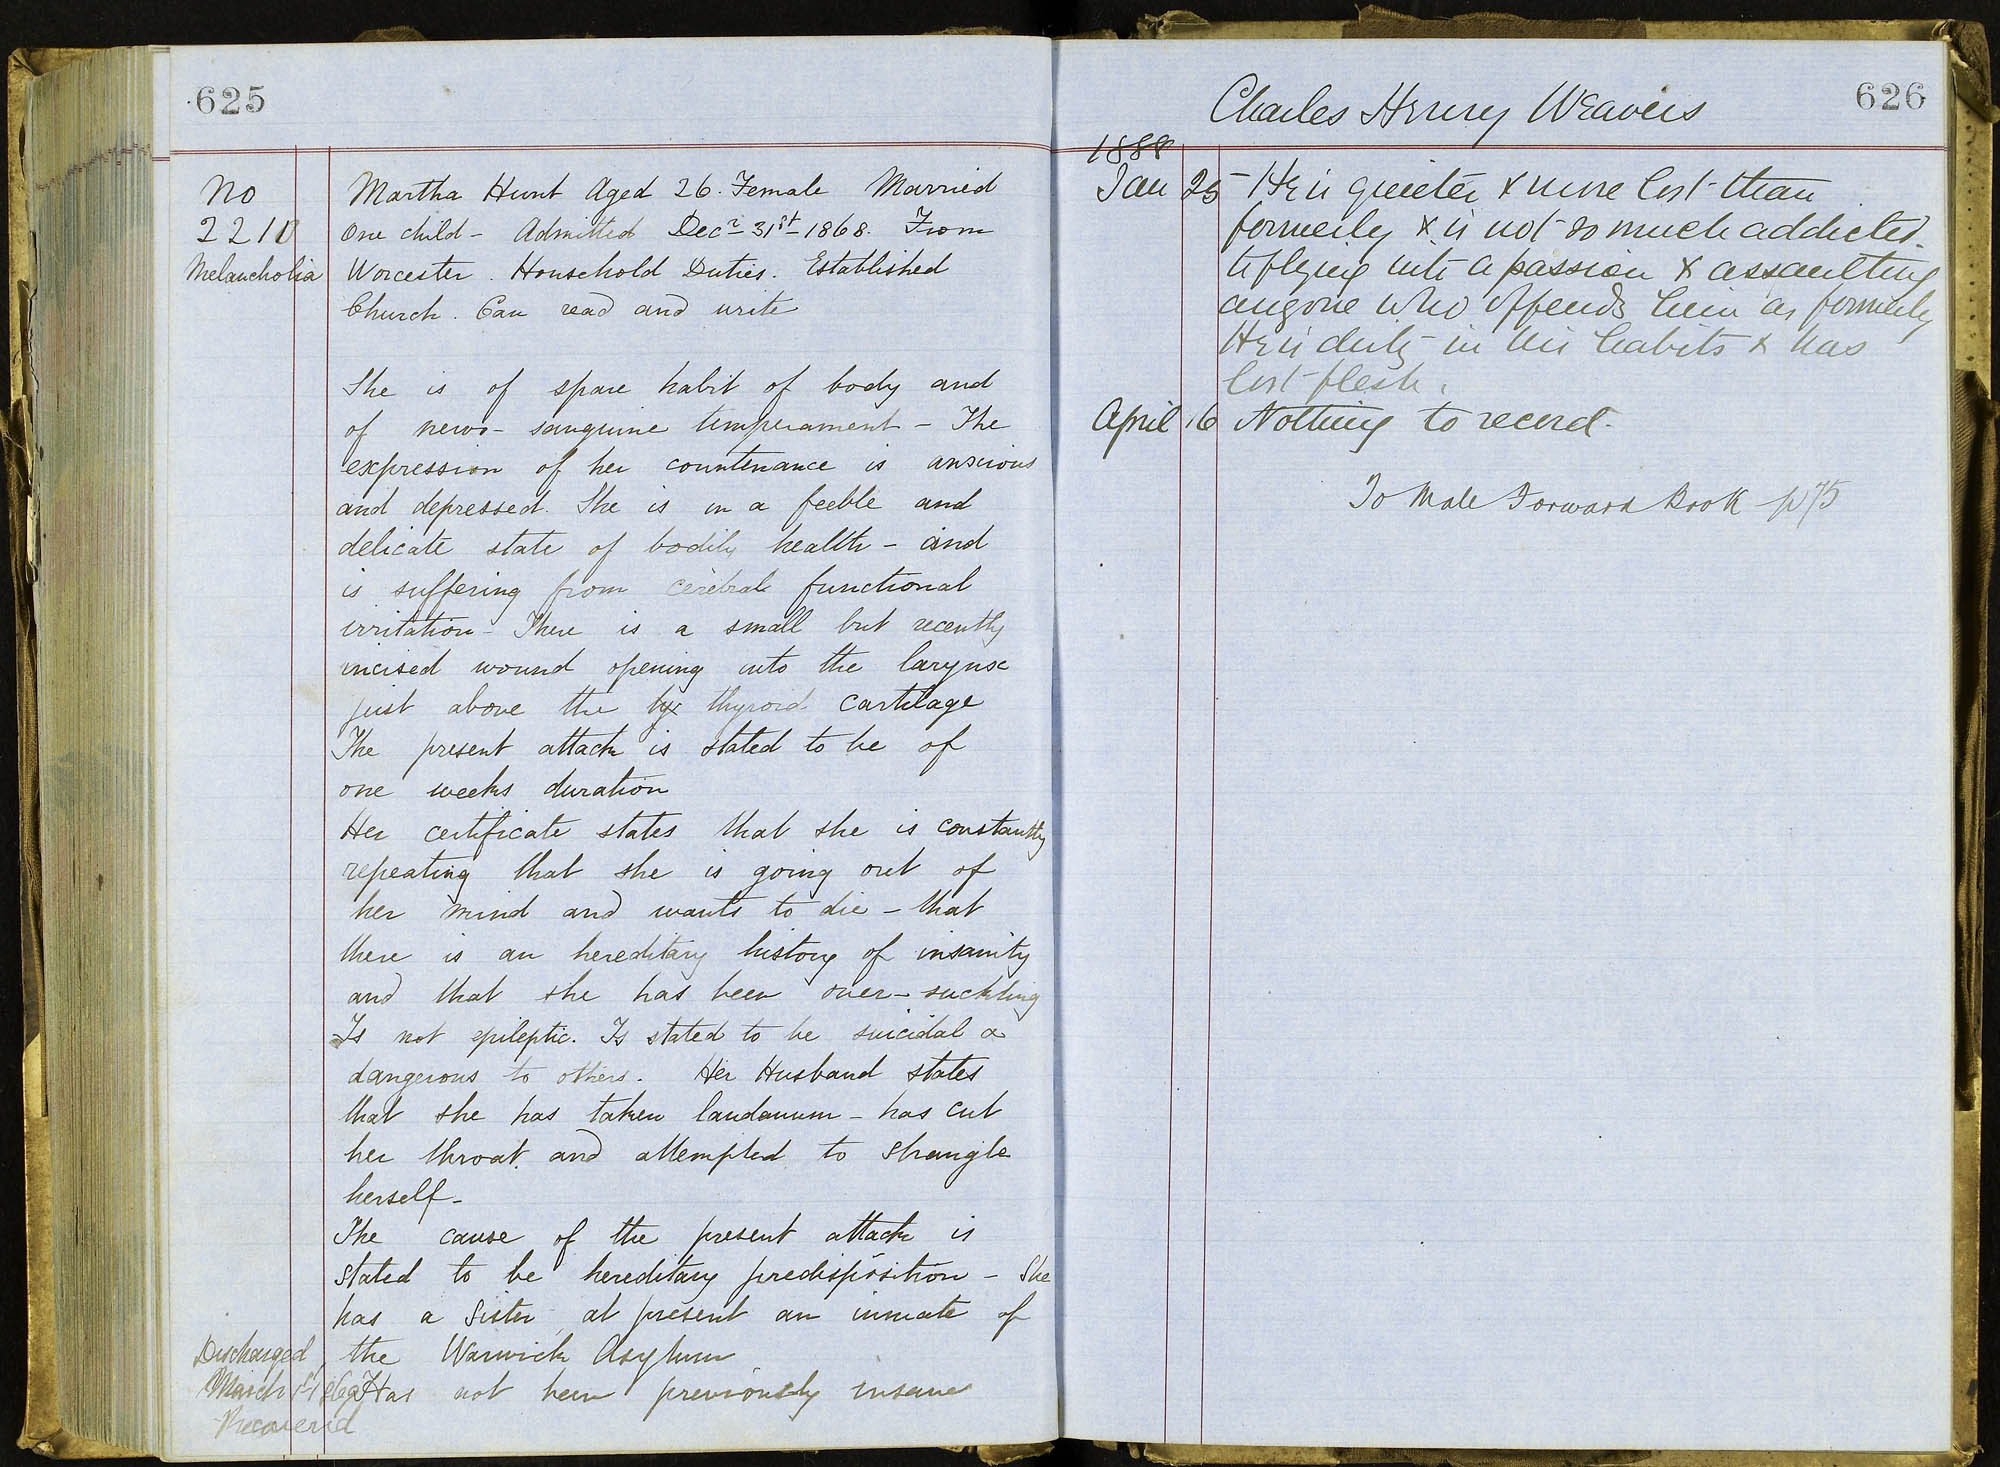 625
No
2210
Melancholia
Martha Hunt Aged 26. Female Married
One child - Admitted Decr 31st 1868. From
Worcester. Household Duties. Established
Church. Can read and write
She is of spare habit of body and
of nervo- sanguine temperament - The
expression of her countenance is anxious
and depressed. She is in a feeble and
delicate state of bodily health - and
is suffering from cerebral functional
irritation - There is a small but recently
incised wound opening into the larynx
just above the thyroid cartilage
The present attack is stated to be of
one weeks duration
Her certificate states that she is constantly
repeating that she is going out of
her mind and wants to die - that
there is an hereditary history of insanity
and that she has been over-suckling
Is not epileptic. Is stated to be suicidal &
dangerous to others. Her Husband states
that she has taken laudanum - has cut
her throat and attempted to strangle
herself -
The cause of the present attack is
stated to be hereditary predisposition - She
has a sister at present an inmate of
the Warwick Asylum
Has not been previously insane
Discharged
March 1st 1869
Recovered
626
Charles Henry Weavers
1888
Jan 25 He is quieter & more lost than
formerly & is not so much addicted
to flying into a passion & assaulting
anyone who offends him as formerly
He is dirty in his habits & has
lost flesh.
April 16 Nothing to record.
To Male Forward Book p75